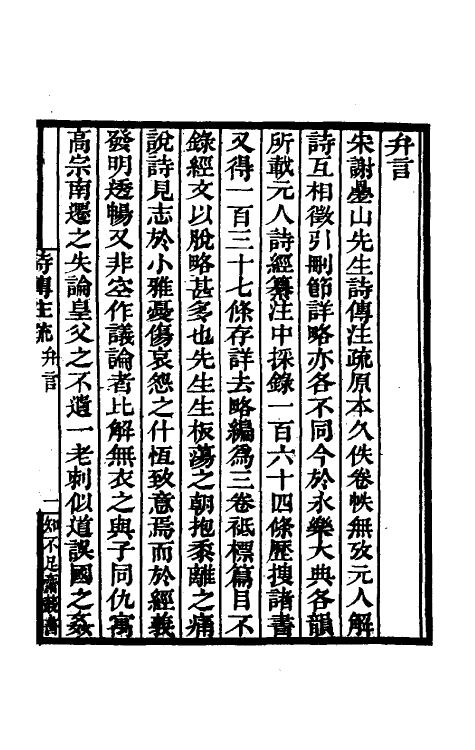 弁言
宋謝疊山先生詩傳注疏原本久佚卷帙無攷元人解
詩互相徵引刪節詳略亦各不同今於永樂大典各韻
所載元人詩經纂注中採錄一百六十四條歷搜諸書
又得一百三十七條存詳去略編爲三卷祗標篇目不
錄經文以脫略甚多也先生生板蕩之朝抱黍離之痛
說詩見志於小雅憂傷哀怨之什恆致意焉而於經義
發明透暢又非空作議論者比解無衣之與子同仇寓
高宗南遷之失論皇父之不遺一老刺似道誤國之姦
詩傳注疏 弁言
一 知不足齋叢書